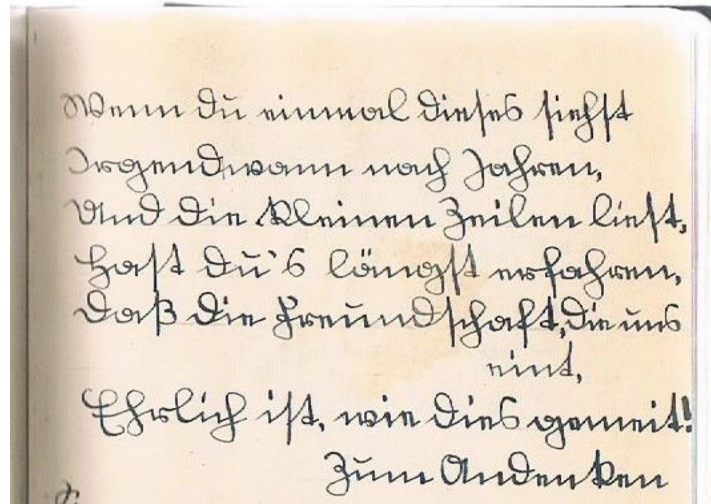 Wenn du einmal dieses siehst
Irgendwann nach Jahren,
Und die kleinen Zeilen liest,
Hast du's längst erfahren,
Daß die Freundschaft, die uns
eint,
Ehrlich ist, wie dies gemeit!
Zum Andenken